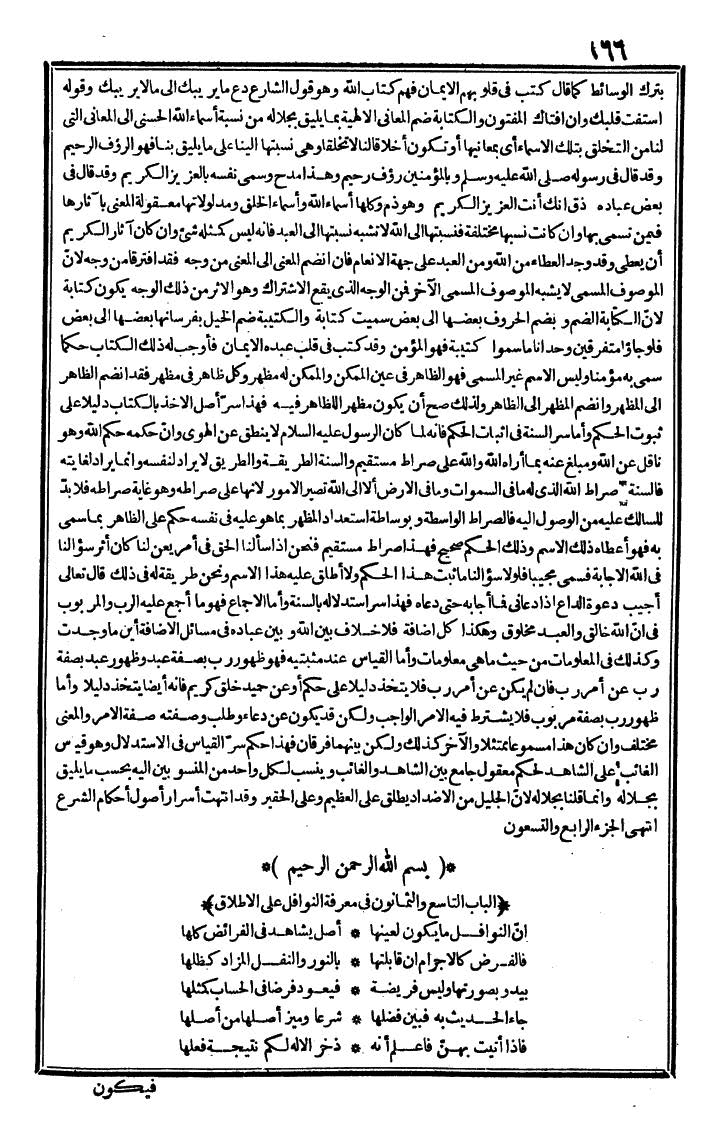 ١٦٦
بترك الوسائط كما قال كتب فى قلوبهم الايمان فهم كتاب الله وهو قول الشارع دع ما يريبك الى ما لا يريبك وقوله
استفت قلبك وان افتاك المفتون والكتابة ضم المعانى الالهية بما يليق بجلاله من نسبة أسماء الله الحسنى الى المعانى التى
لنا من التخلق بتلك الاسماء أى بمعانيها أو تكون أخلاقا لنا لا تخلقا وهى نسبتها الينا على ما يليق بنا فهو الرؤف الرحيم
وقد قال فى رسوله صلى الله عليه وسلم وبالمؤمنين رؤف رحيم وهذا مدح وسمى نفسه بالعزيز الكريم وقد قال فى
بعض عباده ذق انك أنت العزيز الكريم وهو ذم وكلها أسماء الله وأسماء الخلق ومدلولاتها معقولة المعنى بآثارها
فيمن تسمى بها وان كانت نسبها مختلفة فنسبتها الى الله لا تشبه نسبتها الى العبد فانه ليس كمثله شئ وان كان آثار الكريم
أن يعطى وقد وجد العطاء من الله ومن العبد على جهة الانعام فان انضم المعنى الى المعنى من وجه فقد افترقا من وجه لانّ
الموصوف المسمى لا يشبه الموصوف المسمى الآخر فمن الوجه الذى يقع الاشتراك وهو الاثر من ذلك الوجه يكون كتابة
لانّ الكتابة الضم وبضم الحروف بعضها الى بعض سميت كتابة والكتيبة ضم الخيل بفرسانها بعضها الى بعض
فلو جاؤا متفرقين وحدانا ما سموا كتيبة فهو المؤمن وقد كتب فى قلب عبده الايمان فأوجب له ذلك الكتاب حكما
سمى به مؤمنا وليس الاسم غير المسمى فهو الظاهر فى عين الممكن والممكن له مظهر وكل ظاهر فى مظهر فقد انضم الظاهر
الى المظهر وانضم المظهر الى الظاهر ولذلك صح أن يكون مظهرا للظاهر فيه فهذا سرّ أصل الاخذ بالكتاب دليلا على
ثبوت الحكم وأما سر السنة فى اثبات الحكم فانه لما كان الرسول عليه السلام لا ينطق عن الهوى وانّ حكمه حكم الله وهو
ناقل عن الله ومبلغ عنه بما أراه الله والله على صراط مستقيم والسنة الطريقة والطريق لا يراد لنفسه وانما يراد لغايته
فالسنة صراط الله الذى له ما فى السموات وما فى الارض ألا الى الله تصير الامور لانها على صراطه وهو غاية صراطه فلا بدّ
للسالك عليه من الوصول اليه فالصراط الواسطة وبوساطة استعداد المظهر بما هو عليه فى نفسه حكم على الظاهر بما سمى
به فهو أعطاه ذلك الاسم وذلك الحكم صحيح فهذا صراط مستقيم فنحن اذا سألنا الحق فى أمر يعن لنا كان أثر سؤالنا
فى الله الاجابة فسمى مجيبا فلولا سؤالنا ما ثبت هذا الحكم ولا أطلق عليه هذا الاسم ونحن طريقة له فى ذلك قال تعالى
أجيب دعوة الداع اذا دعانى فما أجابه حتى دعاه فهذا سر استدلاله بالسنة وأما الاجماع فهو ما أجمع عليه الرب والمربوب
فى انّ الله خالق والعبد مخلوق وهكذا كل اضافة فلا خلاف بين الله وبين عباده فى مسائل الاضافة أينما وجدت
وكذلك فى المعلومات من حيث ما هى معلومات وأما القياس عند مثبتيه فهو ظهور رب بصفة عبد وظهور عبد بصفة
رب عن أمر رب فان لم يكن عن أمر رب فلا يتخذ دليلا على حكم أو عن حميد خلق كريم فانه أيضا يتخذ دليلا وأما
ظهور رب بصفة مربوب فلا يشترط فيه الامر الواجب ولكن قد يكون عن دعاء وطلب وصفته صفة الامر والمعنى
مختلف وان كان هذا مسموعا ممتثلا والآخر كذلك ولكن بينهما فرقان فهذا حكم سرّ القياس فى الاستدلال وهو قياس
الغائب على الشاهد لحكم معقول جامع بين الشاهد والغائب وينسب لكل واحد من المنسوبين اليه بحسب ما يليق
بجلاله وانما قلنا بجلاله لانّ الجليل من الاضداد يطلق على العظيم وعلى الحقير وقد انتهت أسرار أصول أحكام الشرع
انتهى الجزء الرابع والتسعون
*( بسم الله الرحمن الرحيم )*
﴿الباب التاسع والثمانون فى معرفة النوافل على الاطلاق﴾
انّ النوافل ما يكون لعينها * أصل يشاهد فى الفرائض كلها
فالفرض كالاجرام ان قابلتها * بالنور والنفل المزاد كظلها
يبدو بصورتها وليس فريضة * فيعود فرضا فى الحساب كمثلها
جاء الحديث به فبين فضلها * شرعا وميز أصلها من أصلها
فاذا أتيت بهنّ فاعلم أنه * ذخر الاله لكم نتيجة فعلها
فيكون